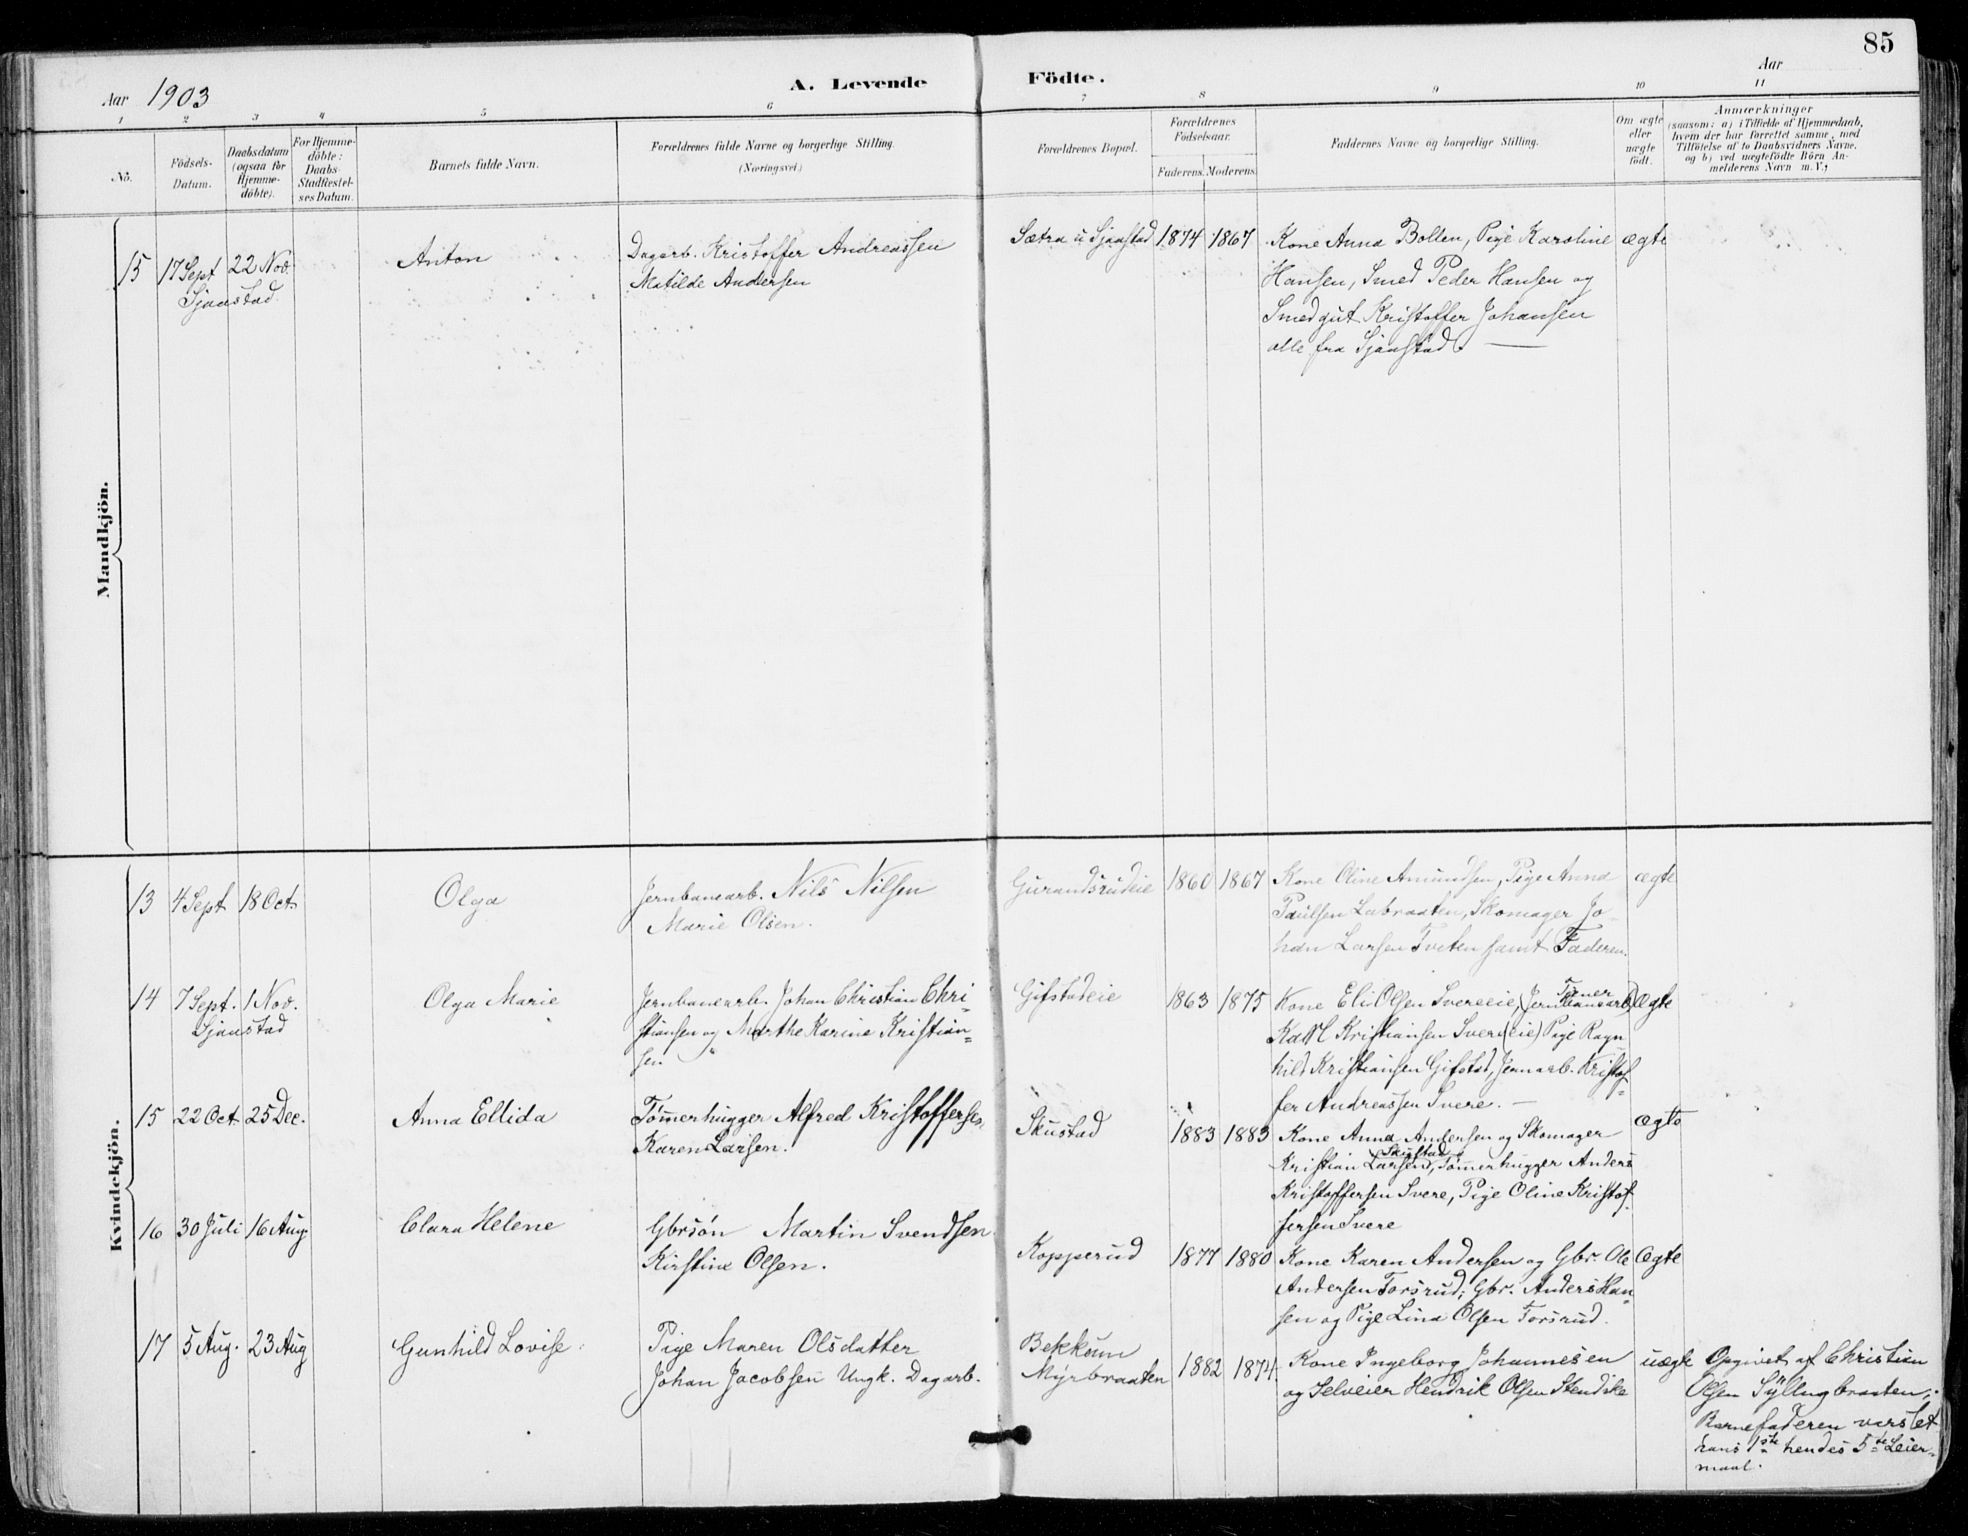 85
Aar 1903
A. Levende Födte.
Aar
1 2 3 4 5 6 7 8 9 10 11
No.
Födsels-
Datum.
Daabsdatum
(ogsaa for
Hjemme-
döbte).
For Hjemme-
döbte:
Daabs-
Stadfæstel-
ses Datum.
Barnets fulde Navn.
Forældrenes fulde Navne og borgerlige Stilling.
(Næringsvei.)
Forældrenes Bopæl.
Forældrenes
Födselsaar.
Faderens. Moderens.
Faddernes Navne og borgerlige Stilling.
Om ægte
eller
uægte
födt.
Anmærkninger
(saasom: a) i Tilfælde af Hjemmedaab,
hvem der har forrettet samme, med
Tilföielse af to Daabsvidners Navne.
og b) ved uægtefödte Börn An-
melderens Navn m. V.)
Mandkjön.
15 17 Sept 22 Nov.
Sjaastad
Anton
Dagarb. Kristoffer Andreassen
Matilde Andersen
Sætra u Sjaastad 1874 1867
Kone Anna Bolten, Pige Karoline
Hansen, Smed Peder Hansen og
Smedgut Kristoffer Johansen
alle fra Sjaastad.
ægte
Kvindekjön.
13 4 Sept 18 Oct.
Olga
Jernbanearb. Nils Nilsen
Marie Olsen.
Gurandsrudeie 1860 1867
Kone Oline Amundsen, Pige Anna
Paulsen Labraaten, Skomager Jo-
han Larsen Tveten samt Faderen.
ægte
14 7 Sept. 1 Nov.
Sjaastad
Olga Marie
Jernbanearb. Johan Christian Chri-
stiansen og Marthe Karine Kristian-
sen
Gifstadeie 1863 1875
Kone Eli Olsen Svereeie, Jernbanearb.
Karl Kristiansen Svere(eie) Pige Ragn
hild Kristiansen Gifstad, Jernarb. Kristof-
fer Andreassen Svere.
ægte
15 22 Oct. 25 Dec.
Anna Ellida
Tømerhugger Alfred Kristoffersen
Karen Larsen.
Skustad 1883 1883
Kone Anna Andersen og Skomager
Kristian Larsen Skustad, Tømerhugger Anders
Kristoffersen Svere, Pige Oline Kristof-
fersen Svere
ægte
16 30 Juli 16 Aug.
Clara Helene
Gbrsøn Martin Svendsen
Kirstine Olsen.
Kopperud 1877 1880
Kone Karen Andersen og Gbr. Ole
Andersen Torsrud; Gbr. Anders Han-
sen og Pige Lina Olsen Torsrud.
Ægte
17 5 Aug. 23 Aug
Gunhild Lovise
Pige Maren Olsdatter
Johan Jacobsen Ungk. Dagarb.
Bekkum
Myrbraaten 1882 1874
Kone Ingeborg Johannesen
og Selveier Hendrik Olsen Stendike
uægte
Opgivet af Christian
Olsen Syllingbraaten;
Barnefaderen varslet
hans 1ste hendes 5te Leier-
maal.